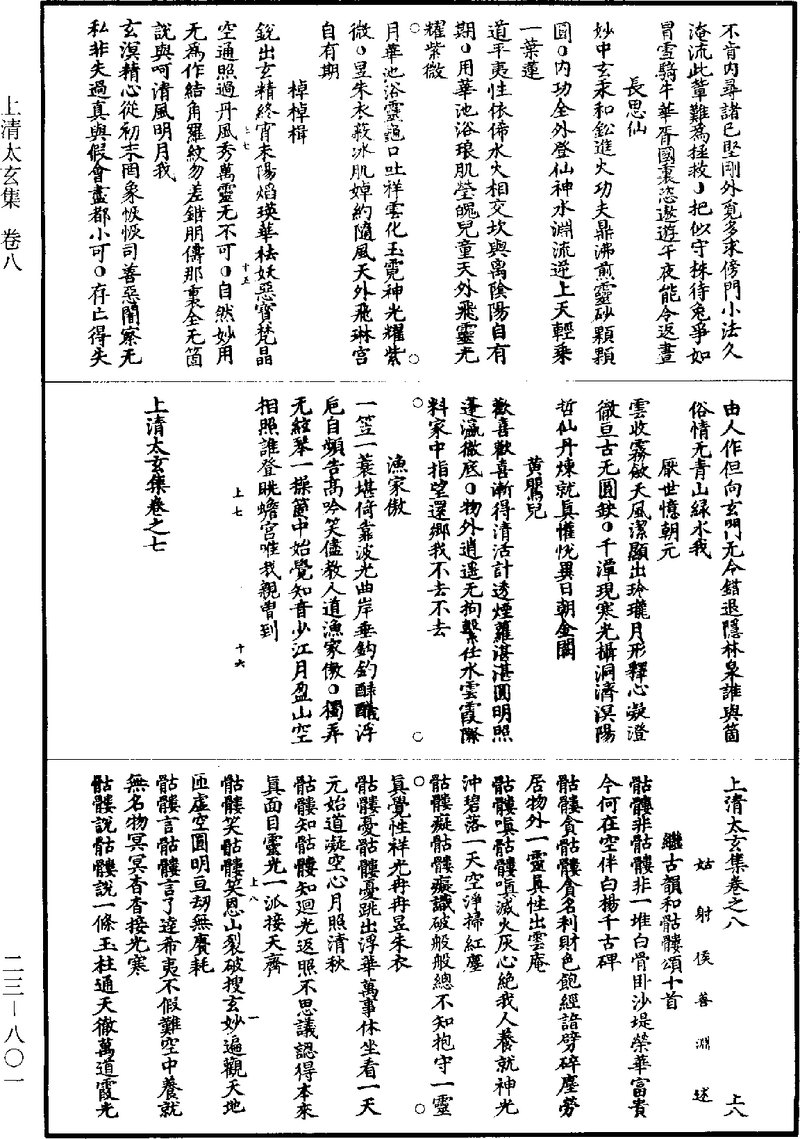 上清太玄集 卷八
不肯内尋諸己堅剛外覓多求傍門小法久
淹流此輩難爲拯救○把似守株待兔爭如
冒雪騎牛華胥國裏恣遨遊午夜能令返晝
長思仙
妙中玄汞和鈆進火功夫鼎沸煎靈砂顆顆
圓○内功全外登仙神水淵流逆上天輕乗
一葉蓮
道平夷性依俙水火相交坎與离陰陽自有
期○用華池浴琅肌瑩魄兒童天外飛靈光
耀紫微
月華池浴靈龜口吐祥雲化玉霓神光耀紫
微○昱朱衣蔌冰肌婥約隨風天外飛琳宫
自有期
棹棹楫
鋭出玄精終宵末陽熖瑛華袪妖惡寳梵晶
空通照過丹風秀萬靈无不可○自然妙用
无爲作結角羅紋勿差錯朋儔那裏全无箇
說與呵清風明月我
玄溟精心從初末罔象恢恢司善惡闇察无
私非失過真與假會盡都小可○存亡得失
上七
十五
由人作但向玄門无令錯退隱林泉誰與箇
俗情无青山緑水我
厭世憶朝元
雲收霧斂天風潔顯出玲瓏月形釋心凝澄
徹亘古无圓缺○千潭現寒光攝洞濟溟陽
哲仙丹煉就真懽悅異日朝金闕
黄鸎兒
歡喜歡喜漸得清活計透煙蘿湛湛圓明照
蓬瀛徹底○物外逍遥无拘繫仕水雲霞際
料家中指望還鄉我不去不去
漁家傲
一笠一蓑堪倚靠波光曲岸垂鈎釣醉醆浮
巵自頻告高吟笑儘教人道漁家傲○獨弄
无絃琴一操箇中始覺知音少江月盈山空
相照誰登眺蟾宫唯我親曽到
上七
十六
上清太玄集卷之七
上清太玄集卷之八
上八
姑射侯善淵述
繼古韻和骷髏頌十首
骷髏非骷髏非一堆白骨卧沙堤榮華富貴
今何在空伴白楊千古碑
骷髏貪骷髏貪名利財色飽經諳劈碎塵勞
居物外一靈真性出雲庵
骷髏嗔骷髏嗔滅火灰心絶我人養就神光
沖碧落一天空淨掃紅塵
骷髏癡骷髏癡識破般般總不知抱守一靈
真覺性祥光冉冉昱朱衣
骷髏憂骷髏憂跳出浮華萬事休坐看一天
元始道凝空心月照清秋
骷髏知骷髏知迴光返照不思議認得本來
真面目靈光一派接天齊
上八
一
骷髏笑骷髏笑恩山裂破搜玄妙遍觀天地
匝虚空圓明亘劫無賡耗
骷髏言骷髏言了達希夷不假難空中養就
無名物冥冥杳杳接光寒
骷髏說骷髏說一條玉柱通天徹萬道霞光
二三—八〇一